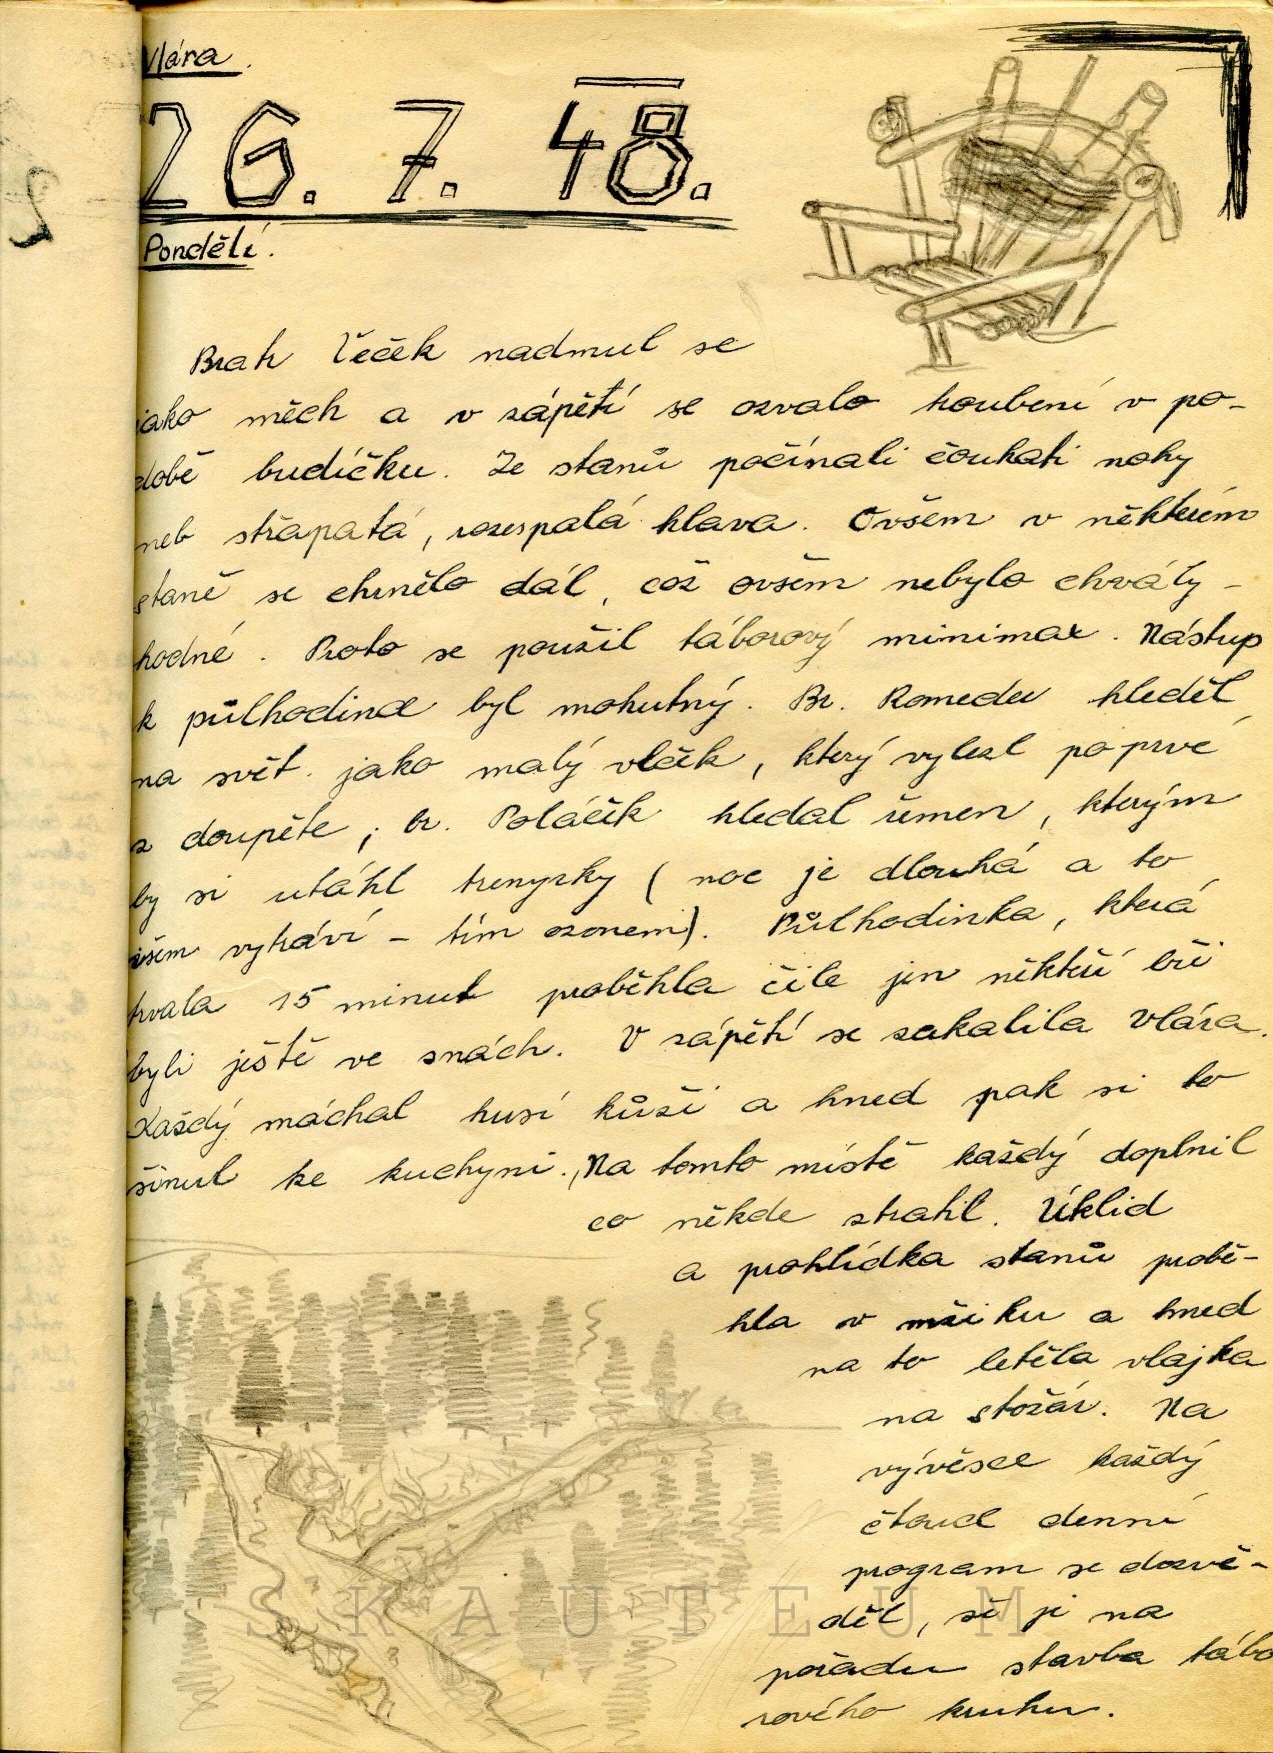 Vlára.
26. 7. 48.
Pondělí.
Bratr Véček nadmul se
jako měch a v zápětí se ozvalo houbení v po-
době budíčku. Ze stanů počínali čouhati nohy
neb střapatá, rozespalá hlava. Ovšem v některém
staně se chrnělo dál, což ovšem nebylo chvály-
hodné. Proto se použil táborový minimax. Nástup
k půlhodince byl mohutný. Br. Romeder hleděl
na svět jako malý vlček, který vylezl po prvé
z doupěte; br. Poláček hledal řemen, kterým
by si utáhl trenyrky (noc je dlouhá a to
všem vytráví - tím ozonem). Půlhodinka, která
trvala 15 minut proběhla čile jen někteří bři
byli ještě ve snách. V zápětí se zakalila Vlára.
Každý máchal husí kůži a hned pak si to
šinul ke kuchyni. Na tomto místě každý doplnil
co někde ztratil. Úklid
a prohlídka stanů probě-
hla v mžiku a hned
na to letěla vlajka
na stožár. Na
vývěsce každý
čtouce denní
program se dozvě-
děl, že je na
pořadu stavba tábo
rového kruhu.
SKAUTEUM